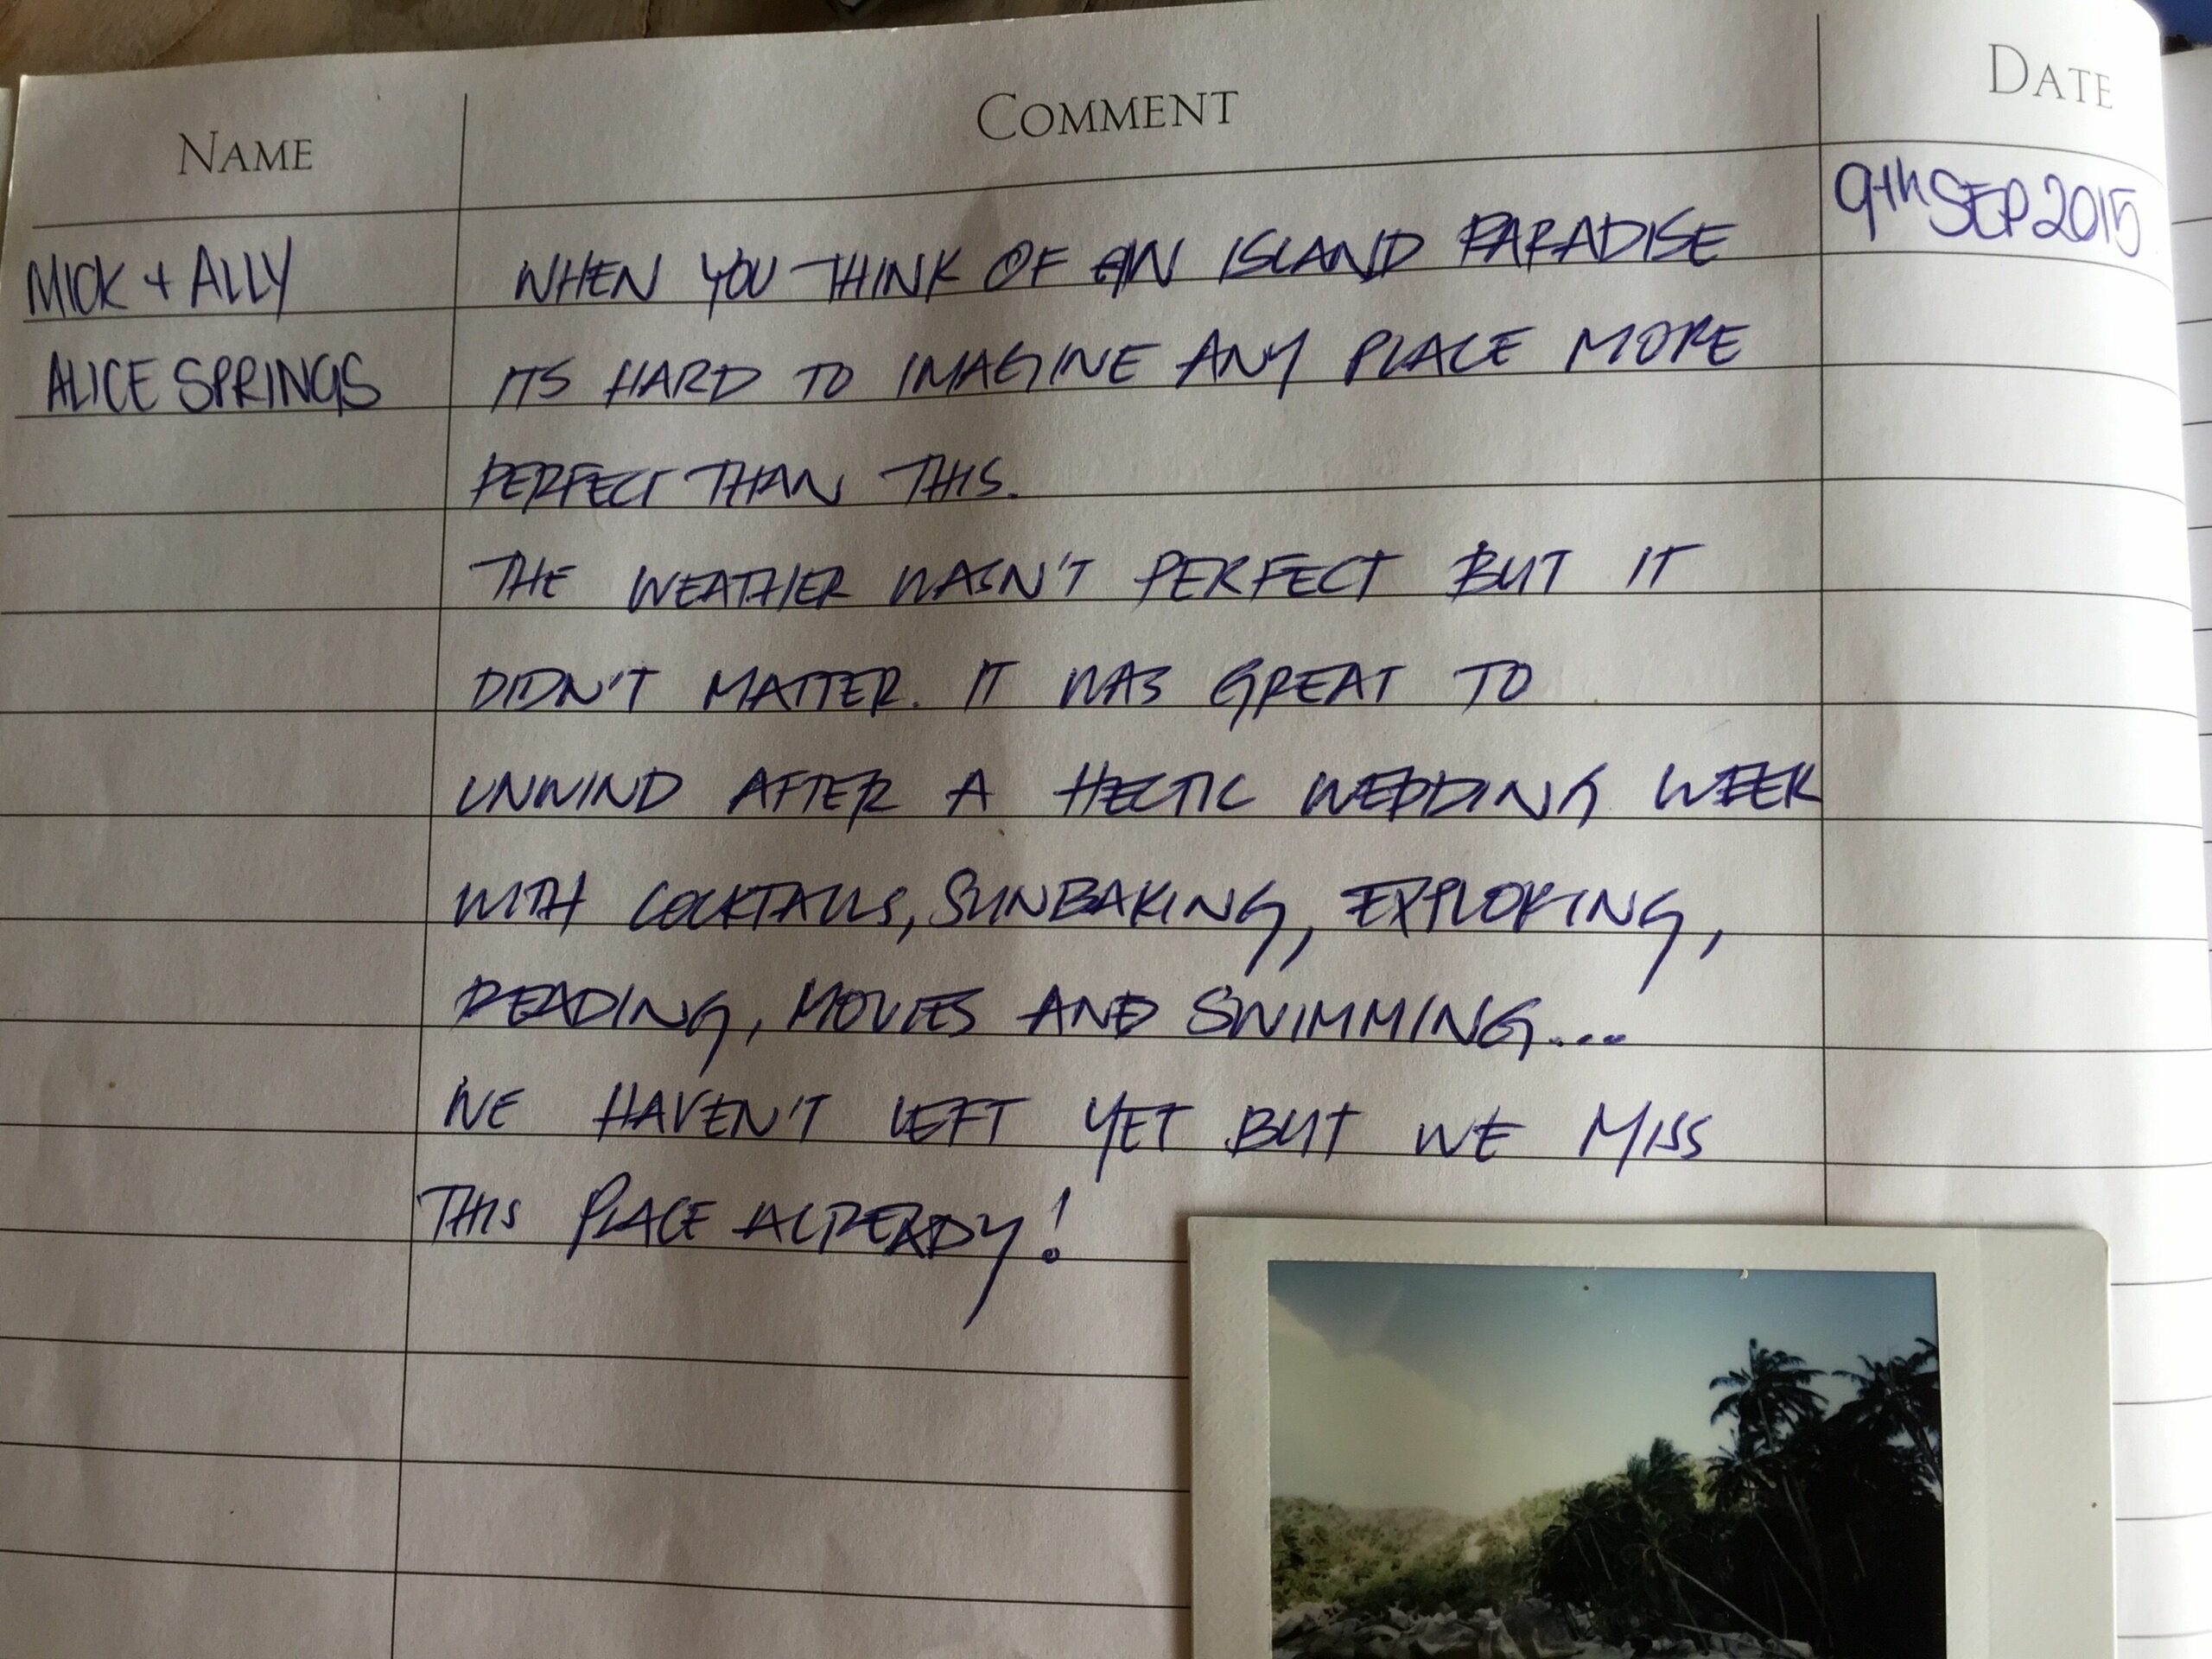 NAME COMMENT DATE
MICK + ALLY WHEN YOU THINK OF AN ISLAND PARADISE 9th SEP 2015
ALICE SPRINGS ITS HARD TO IMAGINE ANY PLACE MORE
PERFECT THAN THIS.
THE WEATHER WASN'T PERFECT BUT IT
DIDN'T MATTER. IT WAS GREAT TO
UNWIND AFTER A HECTIC WEDDING WEEK
WITH COCKTAILS, SUNBAKING, EXPLORING,
READING, MOVIES AND SWIMMING....
WE HAVEN'T LEFT YET BUT WE MISS
THIS PLACE ALREADY!